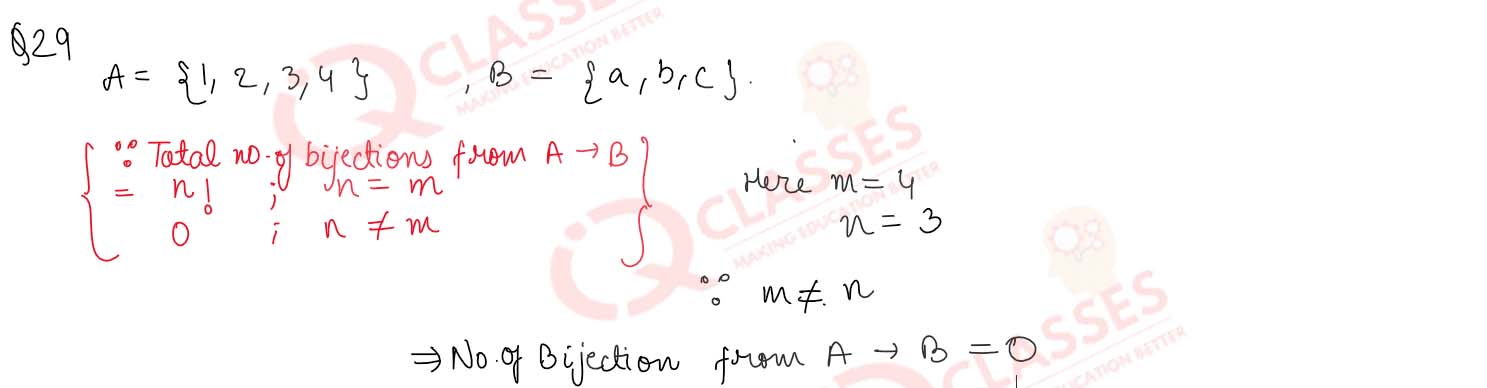 Q29
A = {1, 2, 3, 4} , B = {a, b, c}.
{ ∵ Total no. of bijections from A → B
= n! ; n = m
0 ; n ≠ m }
Here m = 4
n = 3
∵ m ≠ n
⇒ No. of Bijection from A → B = 0
CLASSES
MAKING EDUCATION BETTER
CLASSES
MAKING EDUCATION BETTER
CLASSES
EDUCATION BETTER